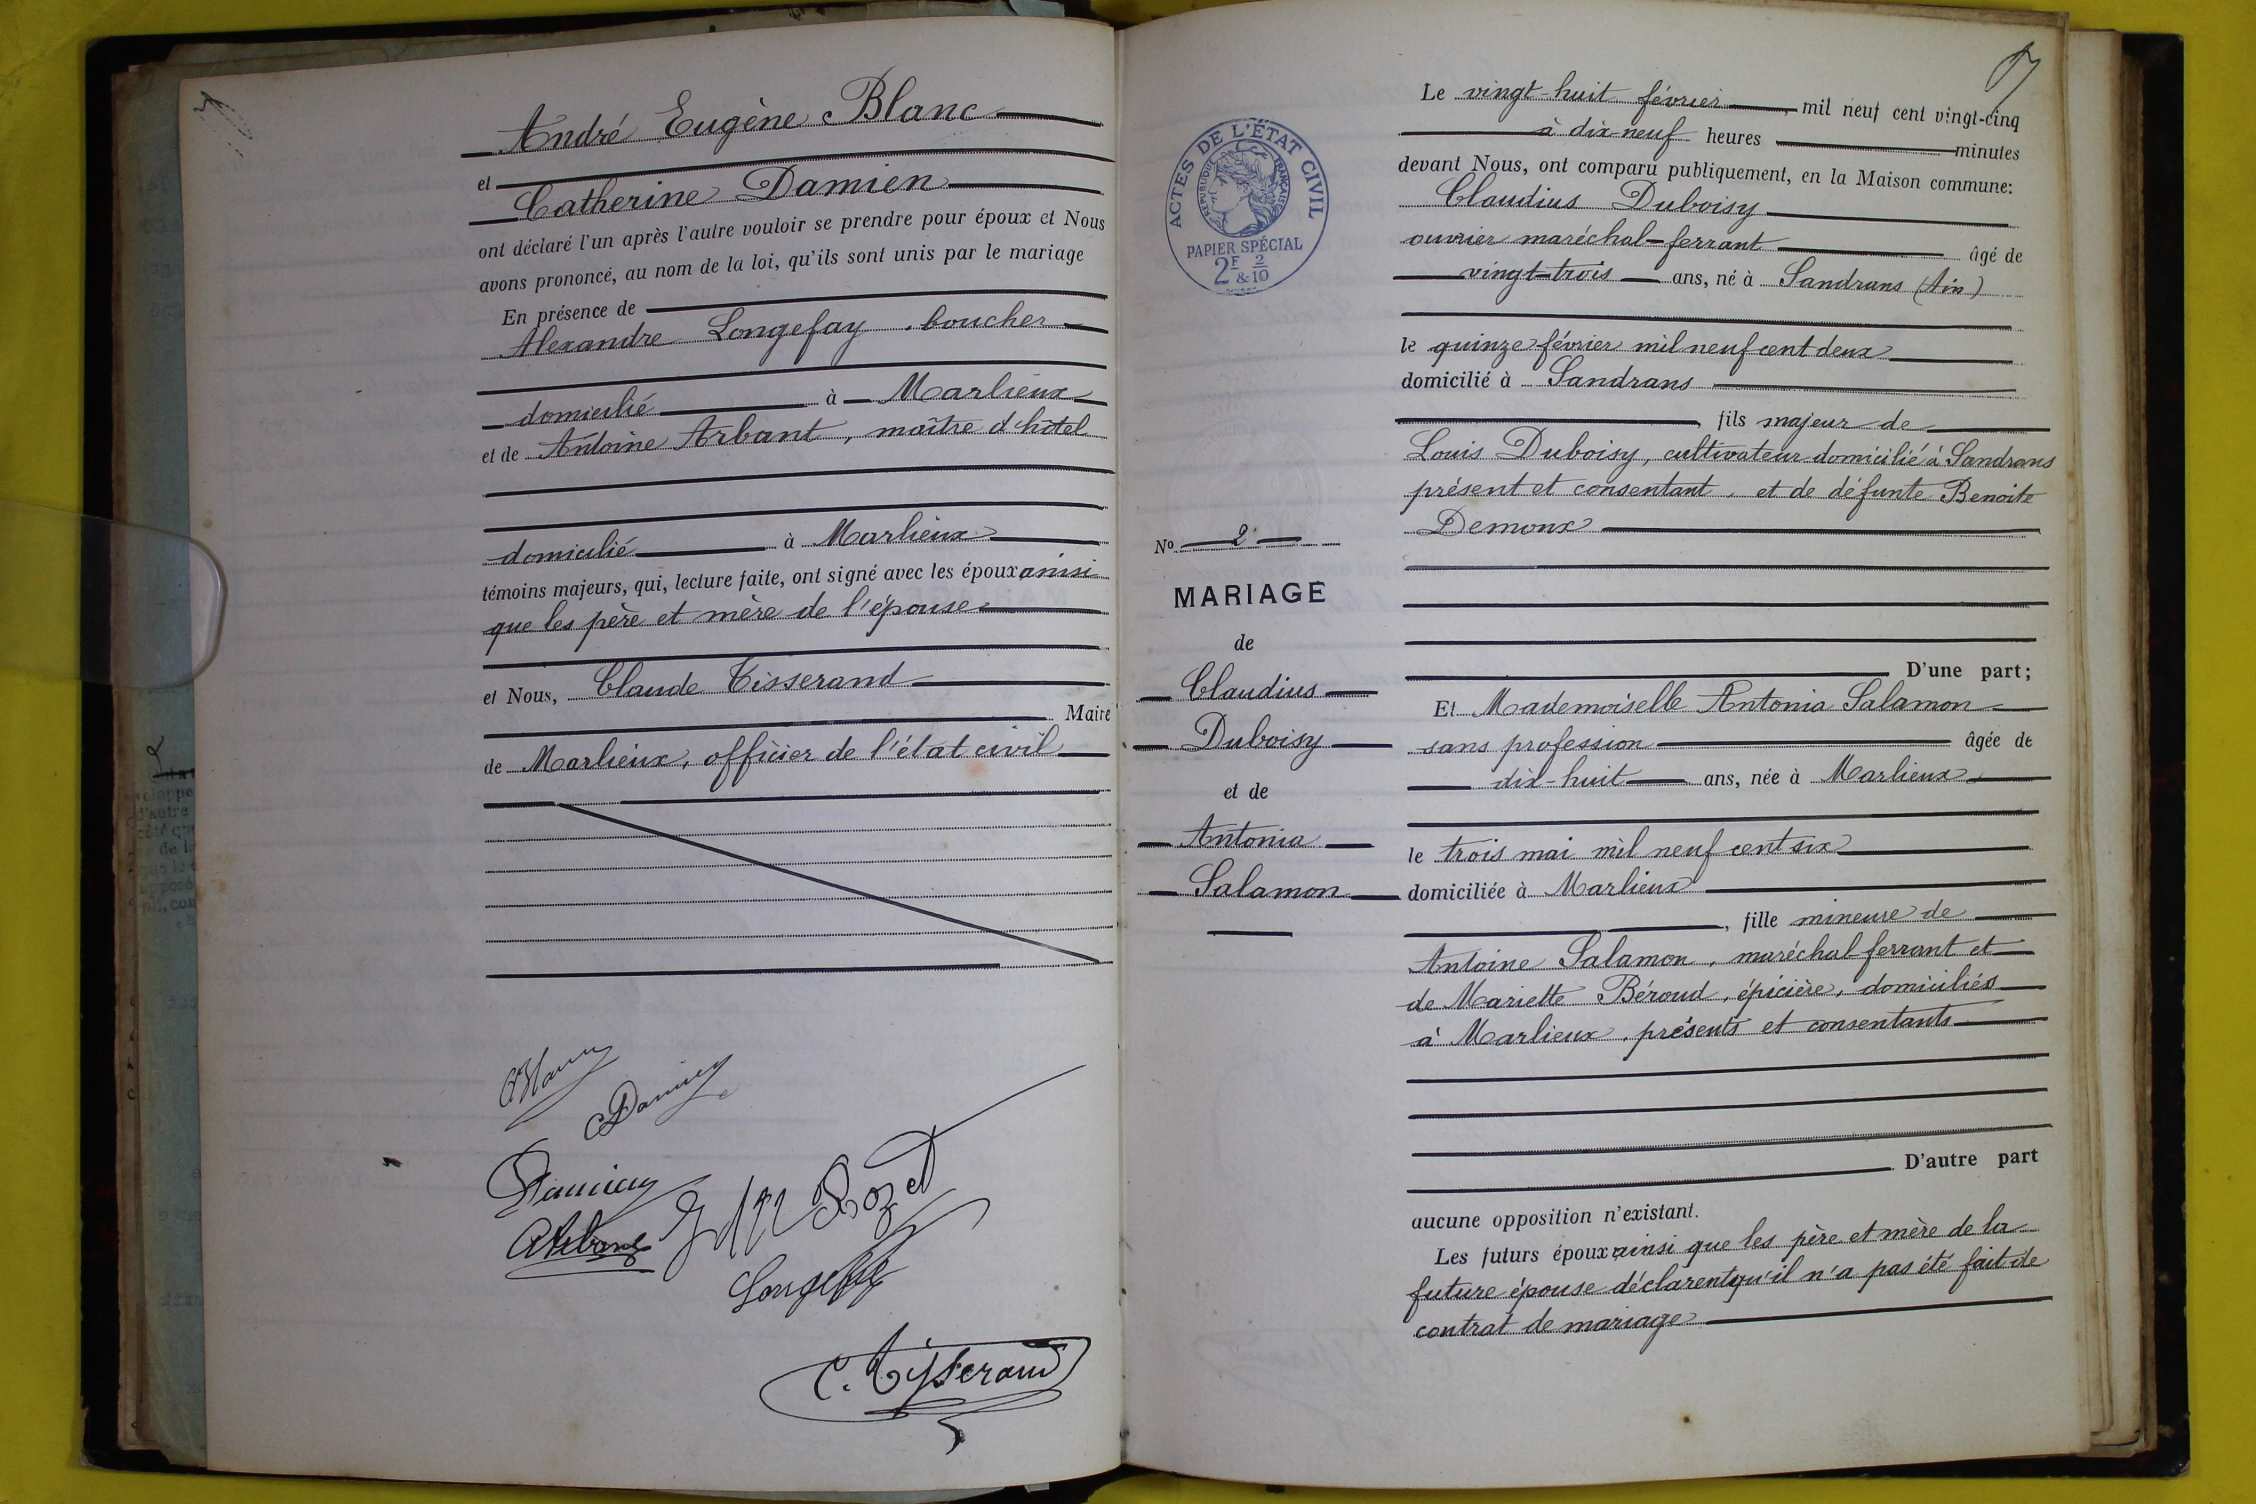 André Eugène Blanc
et
Catherine Damien
ont déclaré l'un après l'autre vouloir se prendre pour époux et Nous
avons prononcé, au nom de la loi, qu'ils sont unis par le mariage
En présence de
Alexandre Longefay, boucher
domicilié à Marlieux
et de Antoine Arbant, maître d'hôtel
domicilié à Marlieux
témoins majeurs, qui, lecture faite, ont signé avec les époux ainsi
que les père et mère de l'épouse
et Nous, Claude Tisserand
Maire
de Marlieux, officier de l'état civil
Longefay
C. Tisserand
ACTES DE L'ÉTAT CIVIL
RÉPUBLIQUE FRANÇAISE
PAPIER SPÉCIAL
2F & 2/10
No 2
MARIAGE
de
Claudius
Duboisy
et de
Antonia
Salamon
Le vingt-huit février, mil neuf cent vingt-cinq
à dix-neuf heures minutes
devant Nous, ont comparu publiquement, en la Maison commune:
Claudius Duboisy
ouvrier maréchal-ferrant âgé de
vingt-trois ans, né à Sandrans (Ain)
le quinze février mil neuf cent deux
domicilié à Sandrans
, fils majeur de
Louis Duboisy, cultivateur domicilié à Sandrans
présent et consentant, et de défunte Benoite
Demoux
D'une part;
Et Mademoiselle Antonia Salamon
sans profession âgée de
dix-huit ans, née à Marlieux
le trois mai mil neuf cent six
domiciliée à Marlieux
, fille mineure de
Antoine Salamon, maréchal ferrant et
de Mariette Béroud, épicière, domiciliés
à Marlieux, présents et consentants
D'autre part
aucune opposition n'existant.
Les futurs époux ainsi que les père et mère de la
future épouse déclarent qu'il n'a pas été fait de
contrat de mariage